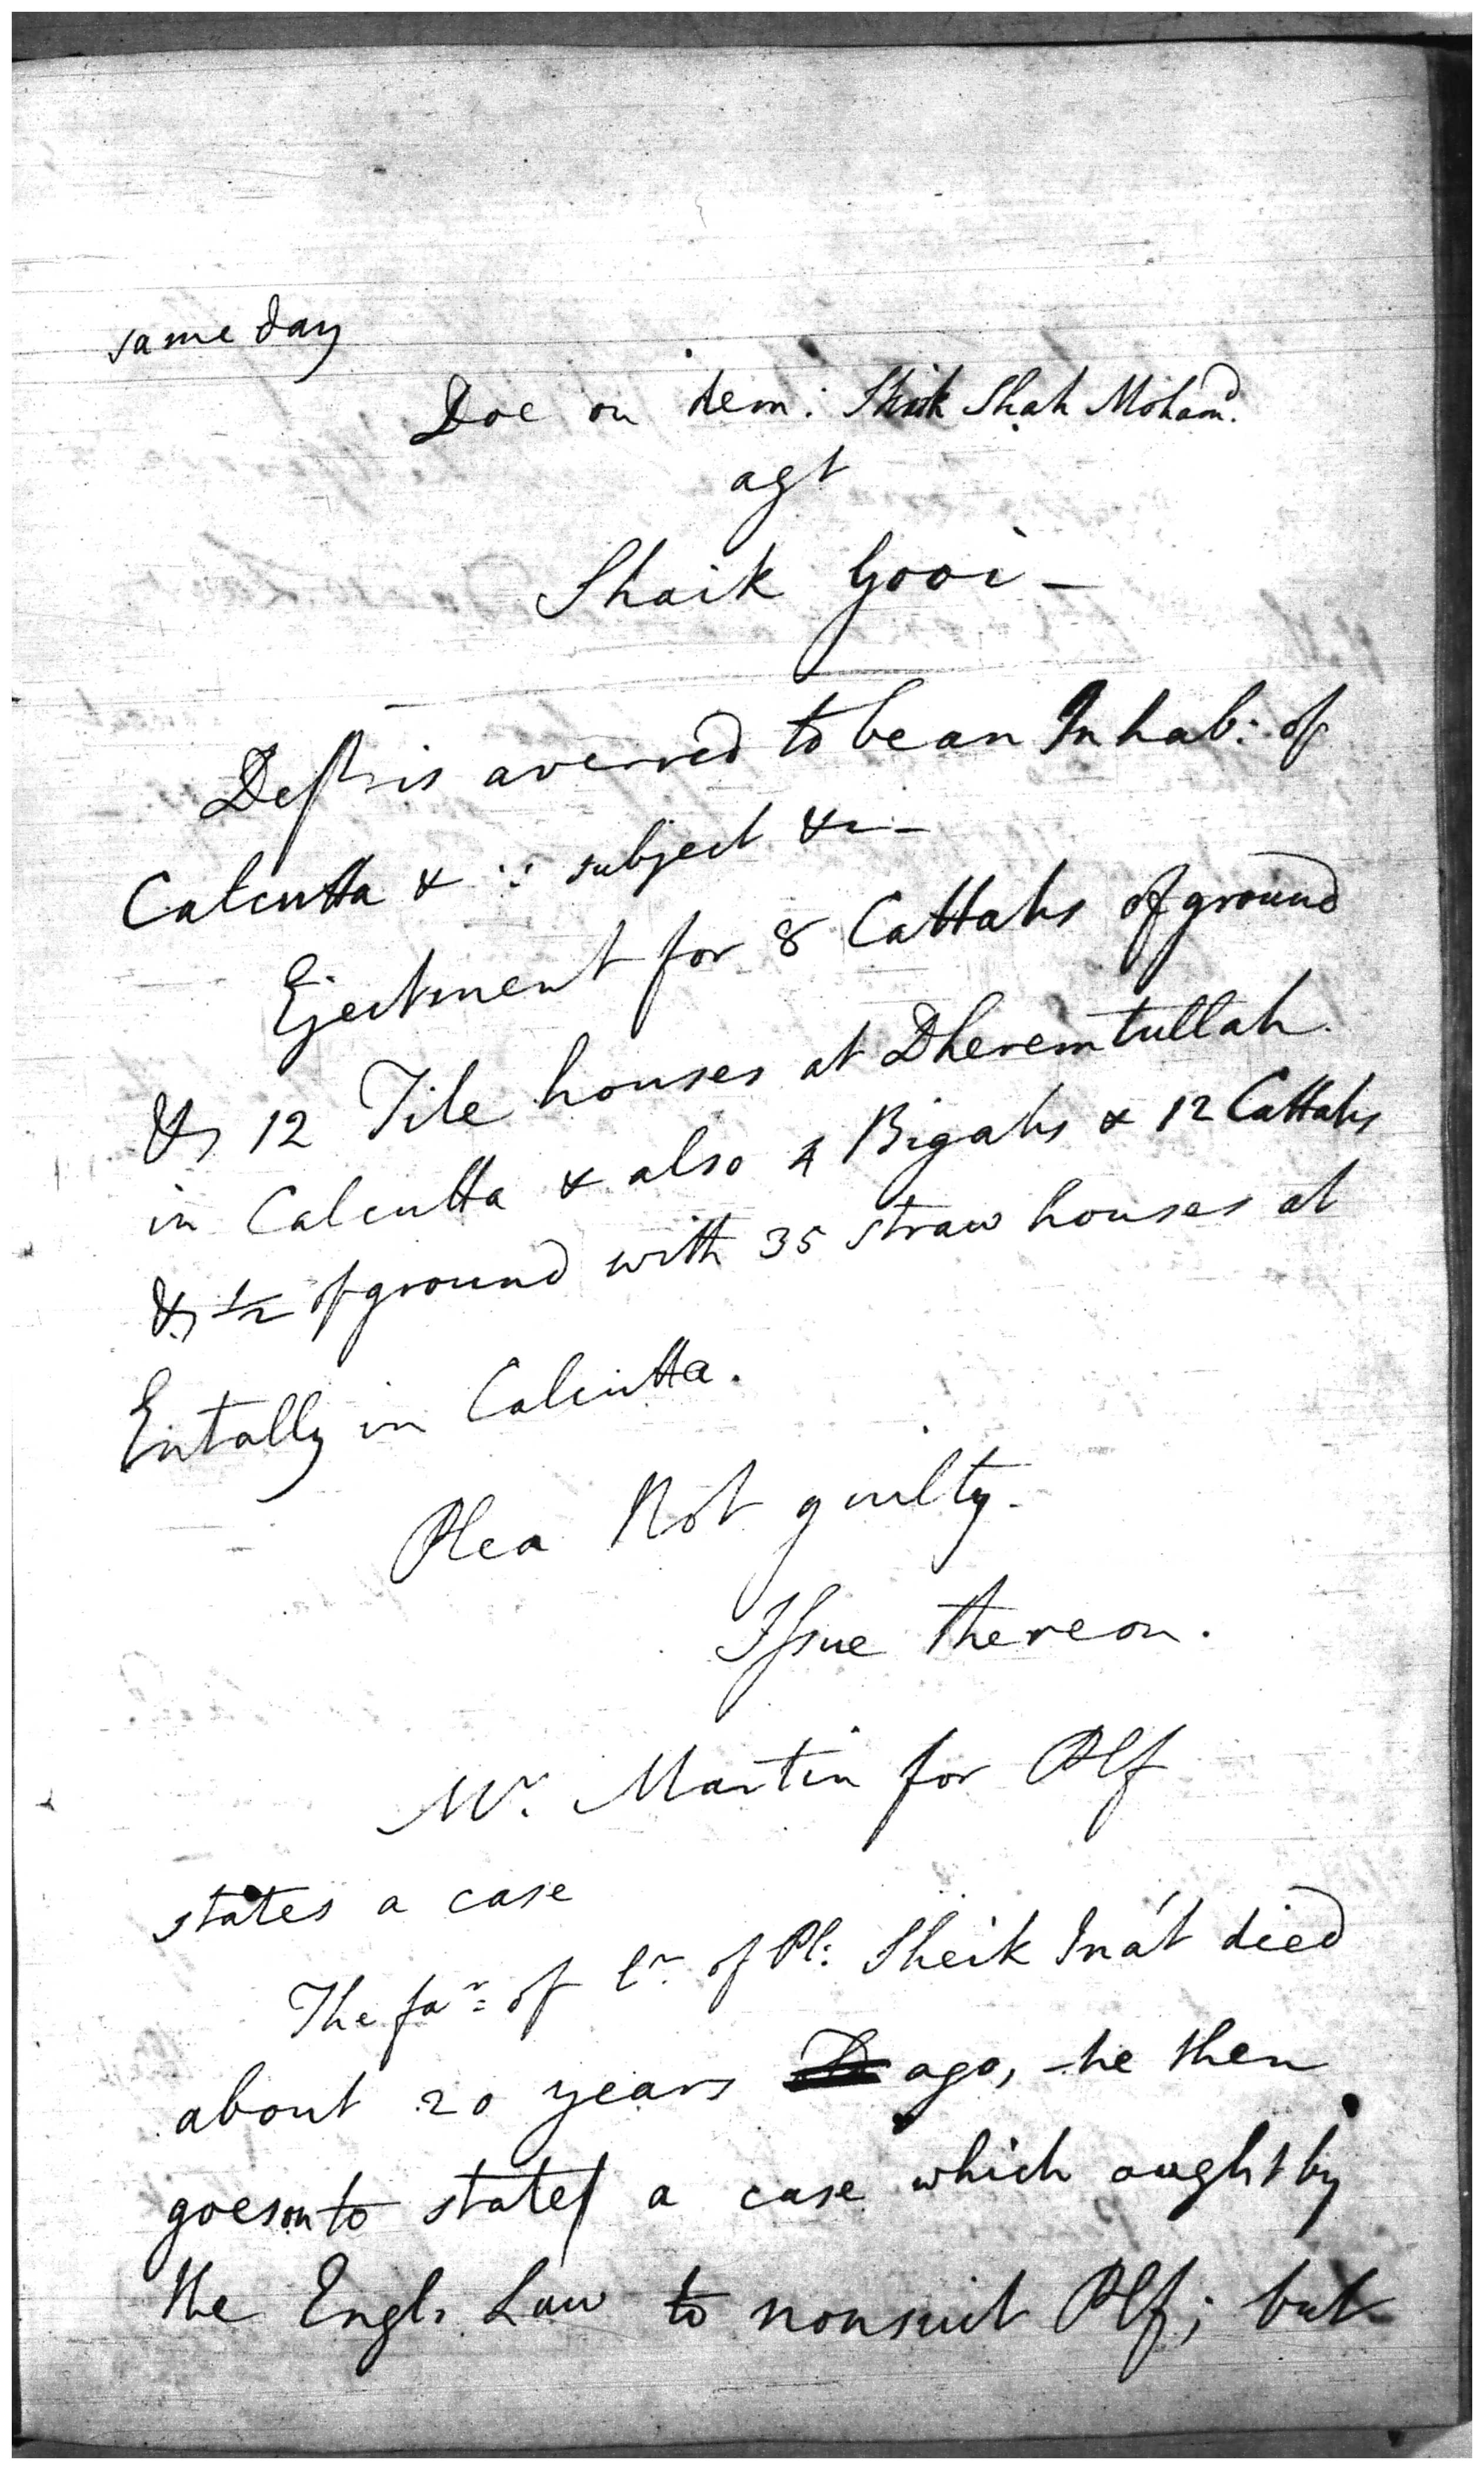 same day
Doe on dem: Shaik Shah Mohamd.
agt
Shaik Gooi —
Deft is averred to be an Inhab: of
Calcutta & ∵ subject &c —
Ejectment for 8 Cattahs of ground
& 12 Tile houses at Dheremtullah
in Calcutta & also 4 Bigahs & 12 Cattahs
& 1/2 of ground with 35 straw houses at
Entally in Calcutta.
Plea Not guilty.
Issue thereon.
Mr. Martin for Plf
states a case
The far: of lr. of Pl: Sheik Inat died
about 20 years ago, - he then
goes on to state a case which ought by
the Engl. Law to nonsuit Plf; but